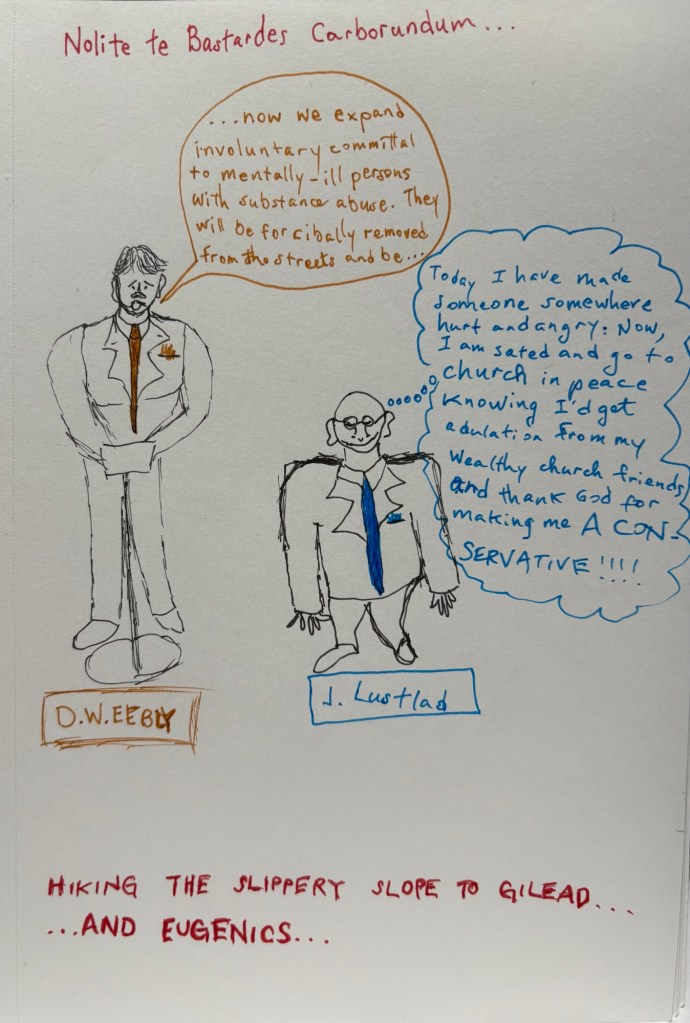 Nolite te Bastardes Carborundum...
...now we expand
involuntary committal
to mentally-ill persons
with substance abuse. They
will be forcibally removed
from the streets and be...
Today I have made
someone somewhere
hurt and angry: Now,
I am sated and go to
church in peace
knowing I'd get
adulation from my
wealthy church friends
and thank God for
making me A CON-
SERVATIVE!!!!
D.W.EEBLY
J. Lustlad
HIKING THE SLIPPERY SLOPE TO GILEAD...
...AND EUGENICS...